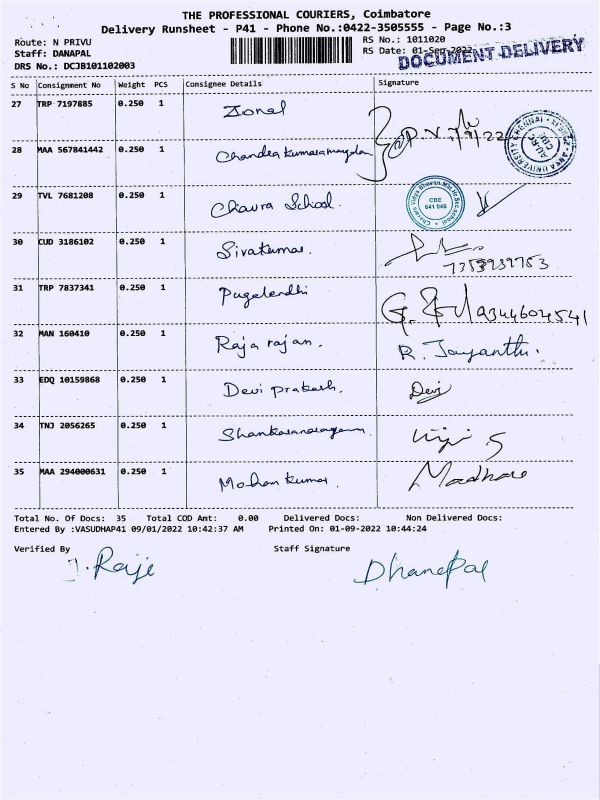 THE PROFESSIONAL COURIERS, Coimbatore
Delivery Runsheet - P41 - Phone No.:0422-3505555 - Page No.:3
Route: N PRIVU RS No.: 1011020
Staff: DANAPAL RS Date: 01-Sep-2022
DRS No.: DCJB101102003 DOCUMENT DELIVERY
S No Consignment No Weight PCS Consignee Details Signature
27 TRP 7197885 0.250 1 Zonal
28 MAA 567841442 0.250 1
29 TVL 7681208 0.250 1 Chavra School.
CBE
641 046
30 CUD 3186102 0.250 1 Sivakumar.
31 TRP 7837341 0.250 1 Pugalendhi
9344604541
32 MAN 160410 0.250 1 Raja rajan. R. Jayanthi.
33 EDQ 10159868 0.250 1 Devi prakash. Devi
34 TNJ 2056265 0.250 1
35 MAA 294000631 0.250 1 Mohan kumar.
Total No. Of Docs: 35 Total COD Amt: 0.00 Delivered Docs: Non Delivered Docs:
Entered By :VASUDHAP41 09/01/2022 10:42:37 AM Printed On: 01-09-2022 10:44:24
Verified By Staff Signature
J. Raji Dhanapal